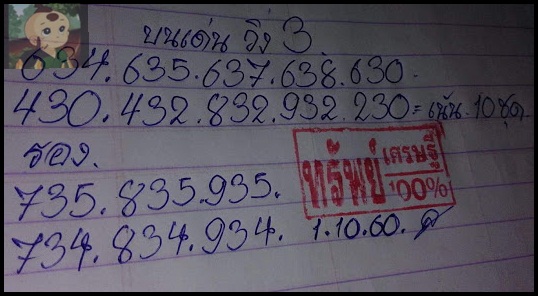 บนเด่น วิ่ง 3
634.635.637.638.630.
430.432.832.932.230=เน้น.10ชุด.
รอง.
735.835.935.
ทรัพย์ เศรษฐี 100%
734.834.934. 1.10.60.